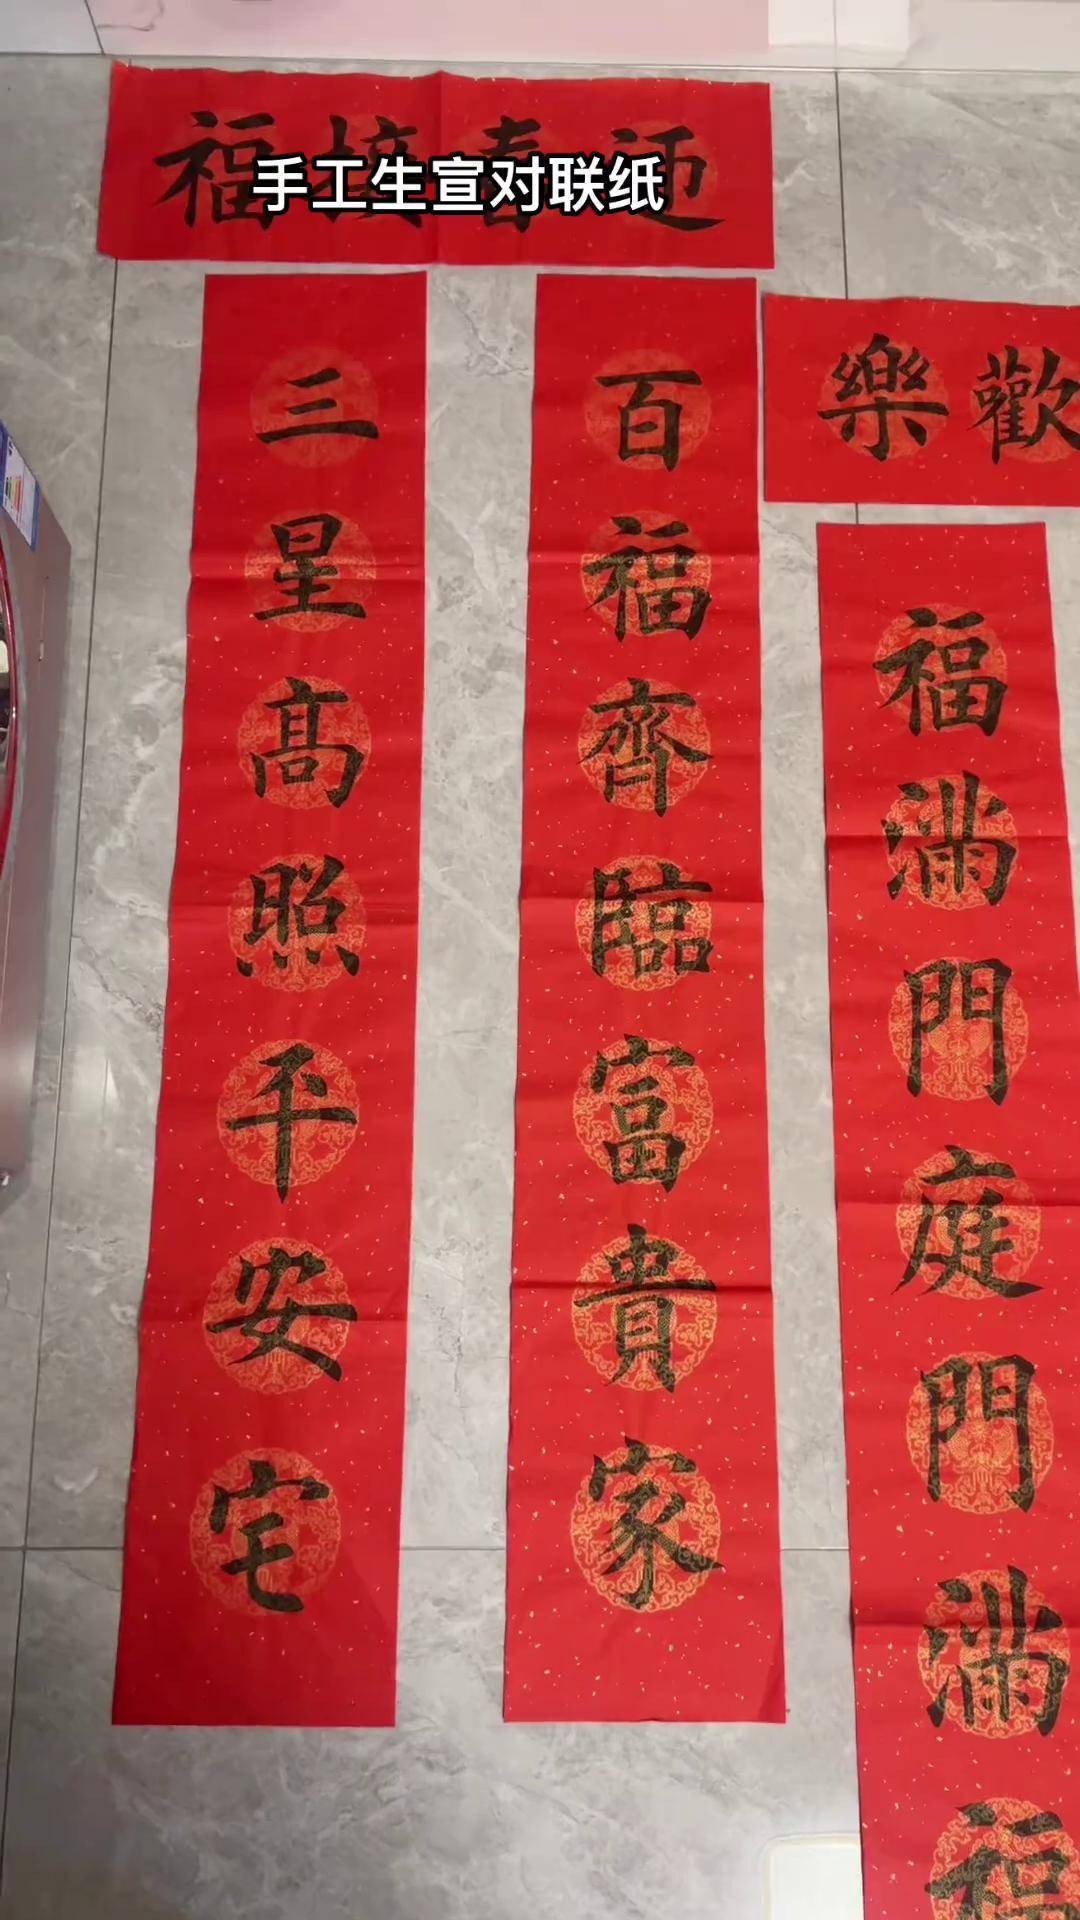 手工生宣对联纸
福接春迎
三星高照平安宅
百福齊臨富貴家
樂歡
福滿門庭門滿福